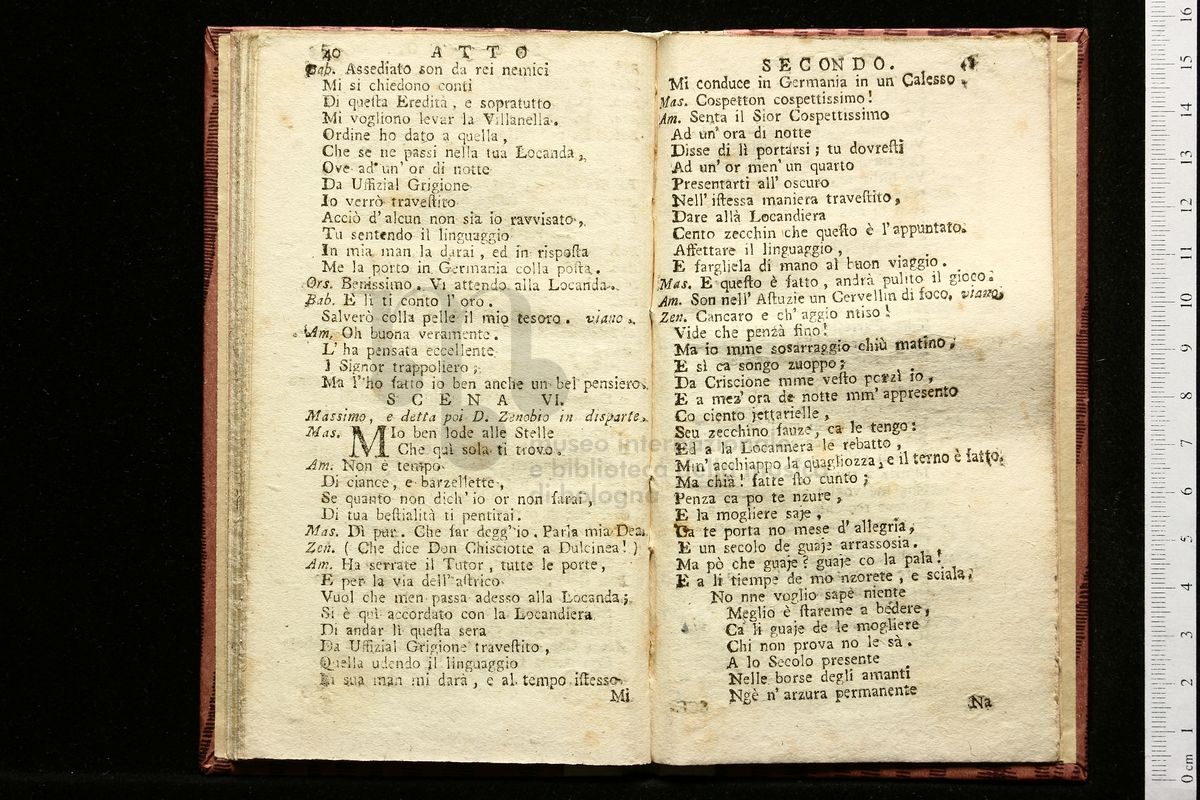 40 ATTO
Bab. Assediato son da rei nemici
Mi si chiedono conti
Di queſta Eredità, e sopratutto
Mi vogliono levar la Villanella.
Ordine ho dato a quella,
Che se ne passi nella tua Locanda,
Ove ad un' or di notte
Da Uffizial Grigione
Io verrò traveſtito
Acciò d'alcun non sia io ravvisato,
Tu sentendo il linguaggio
In mia man la darai, ed in riſpoſta
Me la porto in Germania colla poſta.
Ors. Benissimo. Vi attendo alla Locanda.
Bab. E lì ti conto l'oro.
Salverò colla pelle il mio tesoro. viano.
Am. Oh buona veramente.
L'ha pensata eccellente
I Signor trappoliero;
Ma l'ho fatto io ben anche un bel pensiero.
SCENA VI.
Massimo, e detta poi D. Zenobio in disparte.
Mas. MIo ben lode alle Stelle
Che quì sola ti trovo.
Am. Non è tempo
Di ciance, e barzellette,
Se quanto non dich'io or non farai,
Di tua beſtialità ti pentirai.
Mas. Dì pur. Che far degg'io. Parla mia Dea.
Zen. (Che dice Don Chisciotte a Dulcinea!)
Am. Ha serrate il Tutor, tutte le porte,
E per la via dell'aſtrico
Vuol che men passa adesso alla Locanda;
Si è quì accordato con la Locandiera
Di andar lì queſta sera
Da Uffizial Grigione traveſtito,
Quella udendo il linguaggio
In sua man mi darà, e al tempo iſtesso
Mi
SECONDO.
Mi conduce in Germania in un Calesso.
Mas. Cospetton cospettissimo!
Am. Senta il Sior Cospettissimo
Ad un' ora di notte
Disse di lì portarsi; tu dovreſti
Ad un' or men' un quarto
Presentarti all' oscuro
Nell' iſtessa maniera traveſtito,
Dare allà Locandiera
Cento zecchin che queſto è l'appuntato.
Affettare il linguaggio,
E fargliela di mano al buon viaggio.
Mas. E queſto è fatto, andrà pulito il gioco.
Am. Son nell' Aſtuzie un Cervellin di foco. viano.
Zen. Cancaro e ch' aggio ntiso!
Vide che penzà fino!
Ma io mme sosarraggio chiù matino,
E sì ca songo zuoppo;
Da Criscione mme veſto porzì io,
E a mez' ora de notte mm' appresento
Co ciento jettarielle,
Seu zecchino fauze, ca le tengo:
Ed a la Locannera le rebatto,
Mm' acchiappo la quagliozza, e il terno è fatto.
Ma chià! fatte ſto cunto;
Penza ca po te nzure,
E la mogliere saje,
Ca te porta no mese d' allegria,
E un secolo de guaje arrassosia.
Ma pò che guaje? guaje co la pala!
E a li tiempe de mo nzorete, e sciala.
No nne voglio sapè niente
Meglio è ſtareme a bedere,
Ca li guaje de le mogliere
Chi non prova no le sà.
A lo Secolo presente
Nelle borse degli amanti
Ngè n' arzura permanente
Na
museo internazionale
e biblioteca della musica
di bologna
0 cm 1 2 3 4 5 6 7 8 9 10 11 12 13 14 15 16